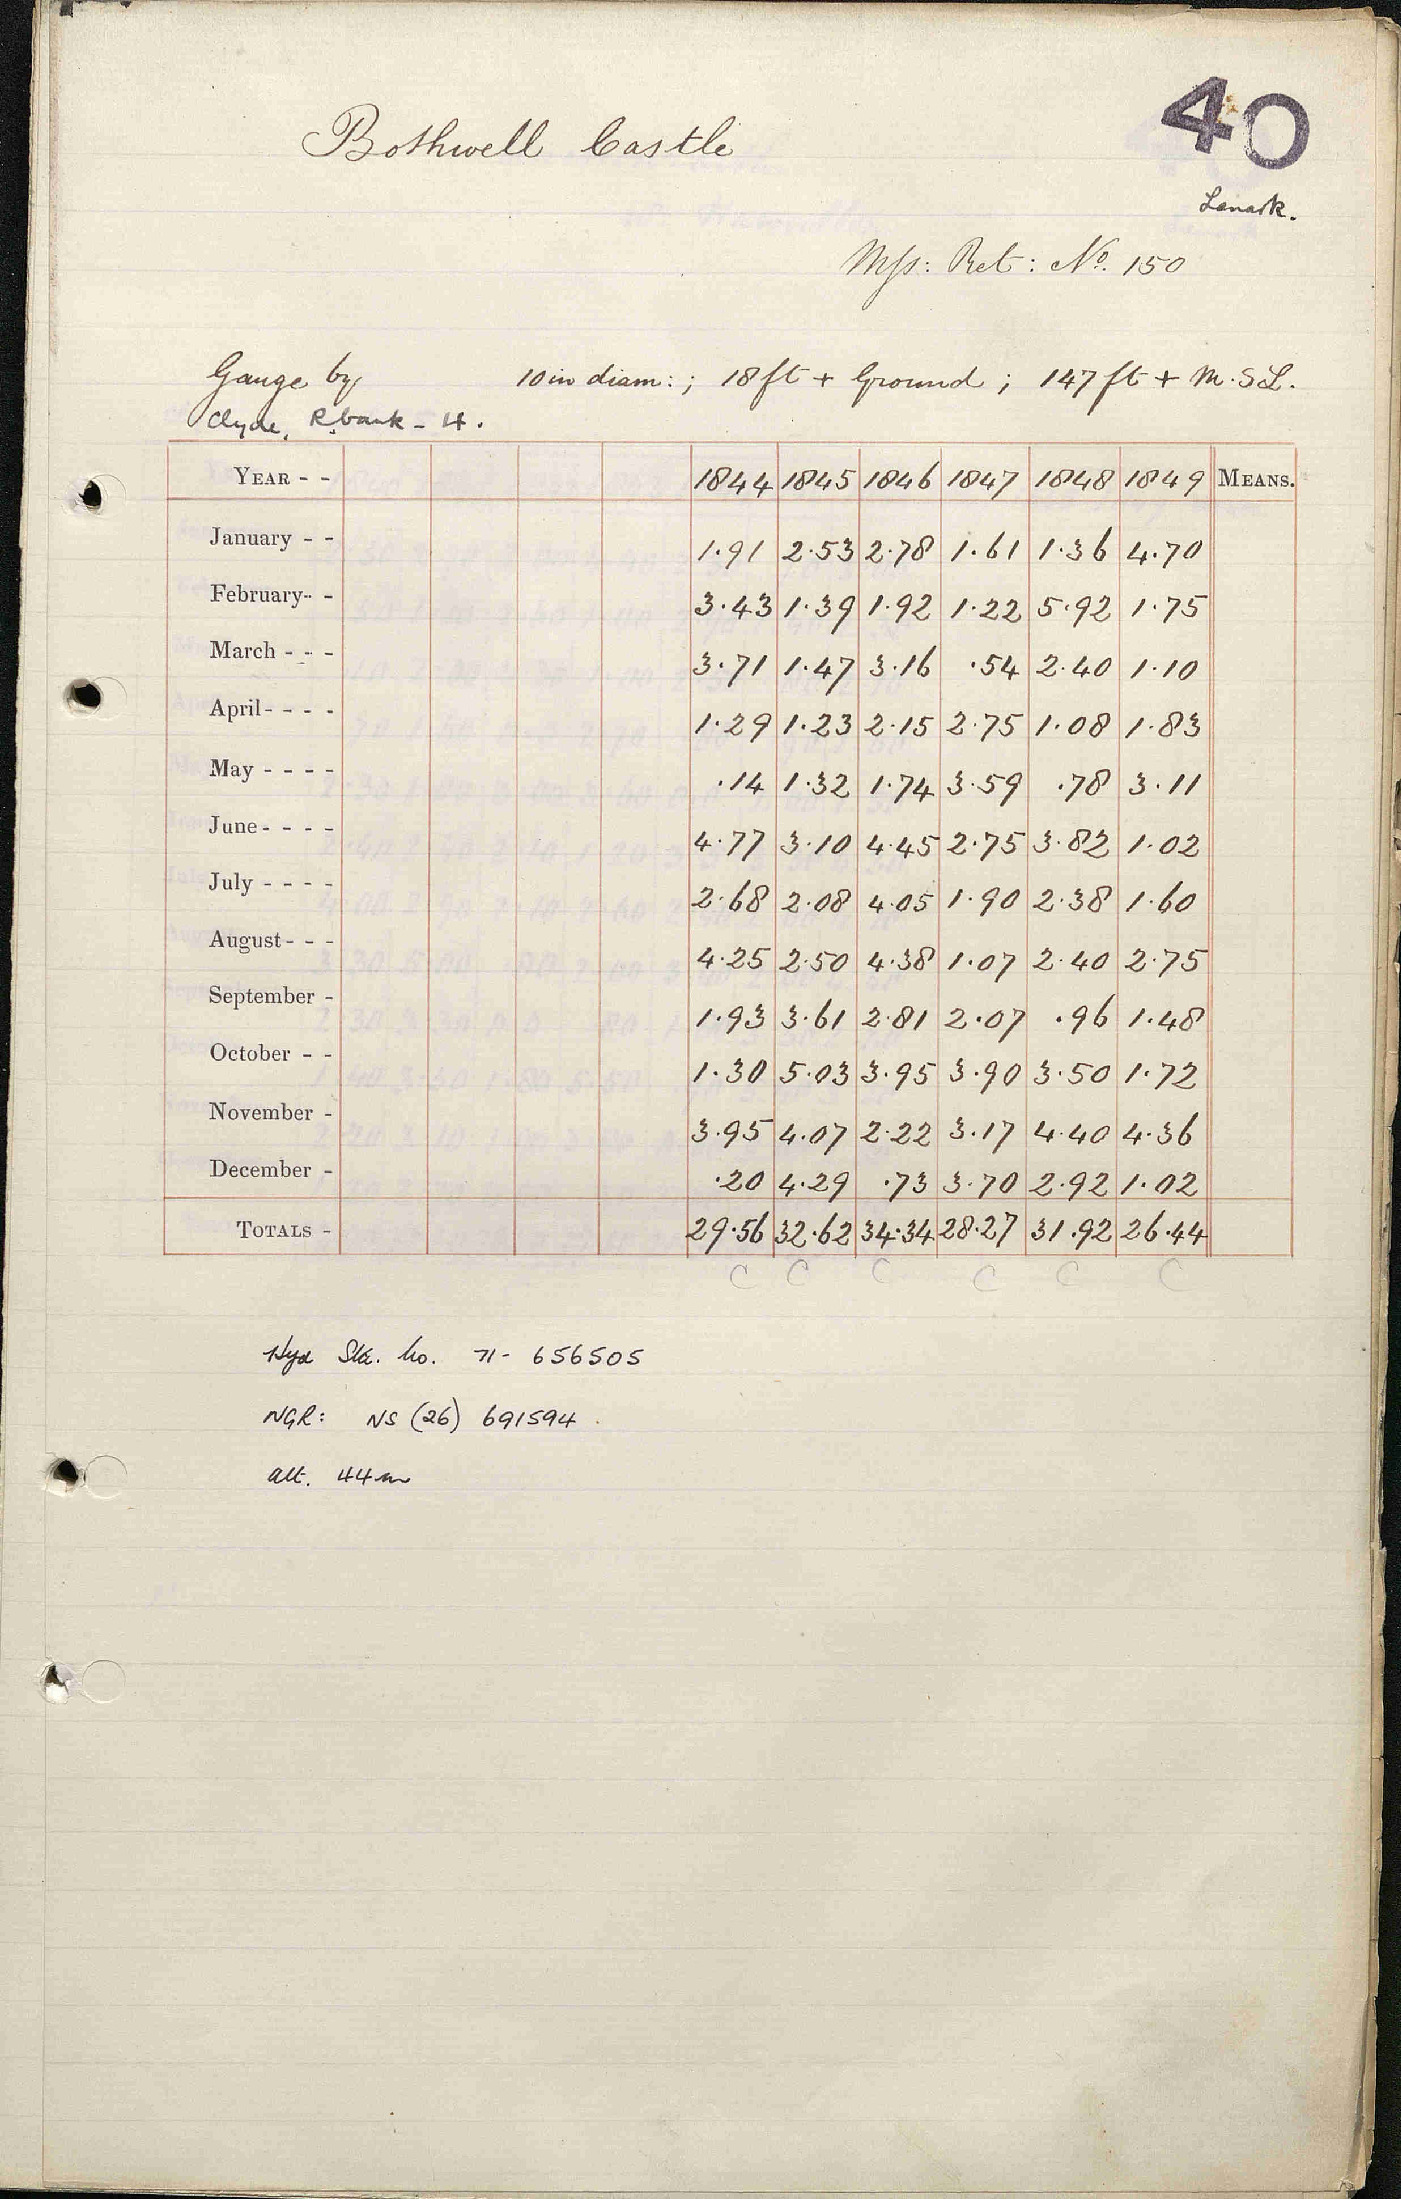 40
Bothwell Castle
Lanark.
Mss: Ret: No. 150
Gauge by 10 in diam: ; 18 ft + Ground ; 147 ft + M.S.L.
Clyde, R. bank - H.
YEAR - - 1844 1845 1846 1847 1848 1849 MEANS.
January - - 1.91 2.53 2.78 1.61 1.36 4.70
February - - 3.43 1.39 1.92 1.22 5.92 1.75
March - - - 3.71 1.47 3.16 .54 2.40 1.10
April - - - - 1.29 1.23 2.15 2.75 1.08 1.83
May - - - - .14 1.32 1.74 3.59 .78 3.11
June - - - - 4.77 3.10 4.45 2.75 3.82 1.02
July - - - - 2.68 2.08 4.05 1.90 2.38 1.60
August - - - 4.25 2.50 4.38 1.07 2.40 2.75
September - 1.93 3.61 2.81 2.07 .96 1.48
October - - 1.30 5.03 3.95 3.90 3.50 1.72
November - 3.95 4.07 2.22 3.17 4.40 4.36
December - .20 4.29 .73 3.70 2.92 1.02
TOTALS - 29.56 32.62 34.34 28.27 31.92 26.44
C C C C C C
Hyd Sta. No. 71- 656505
NGR: NS (26) 691594
alt. 44m